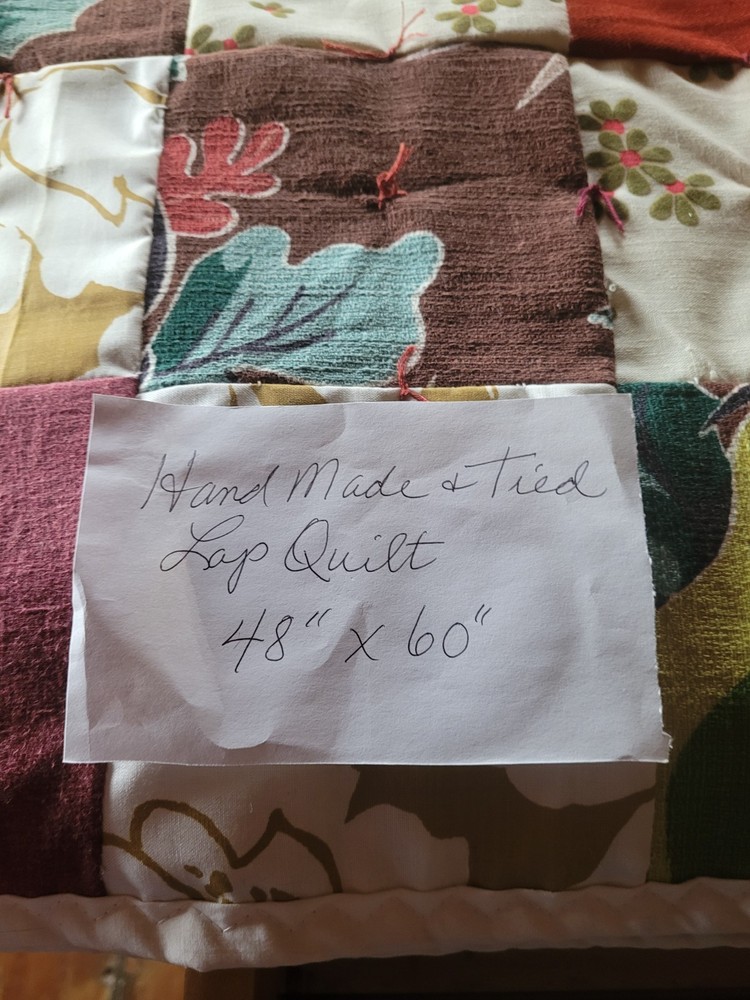 Hand Made & Tied
Lap Quilt
48" x 60"